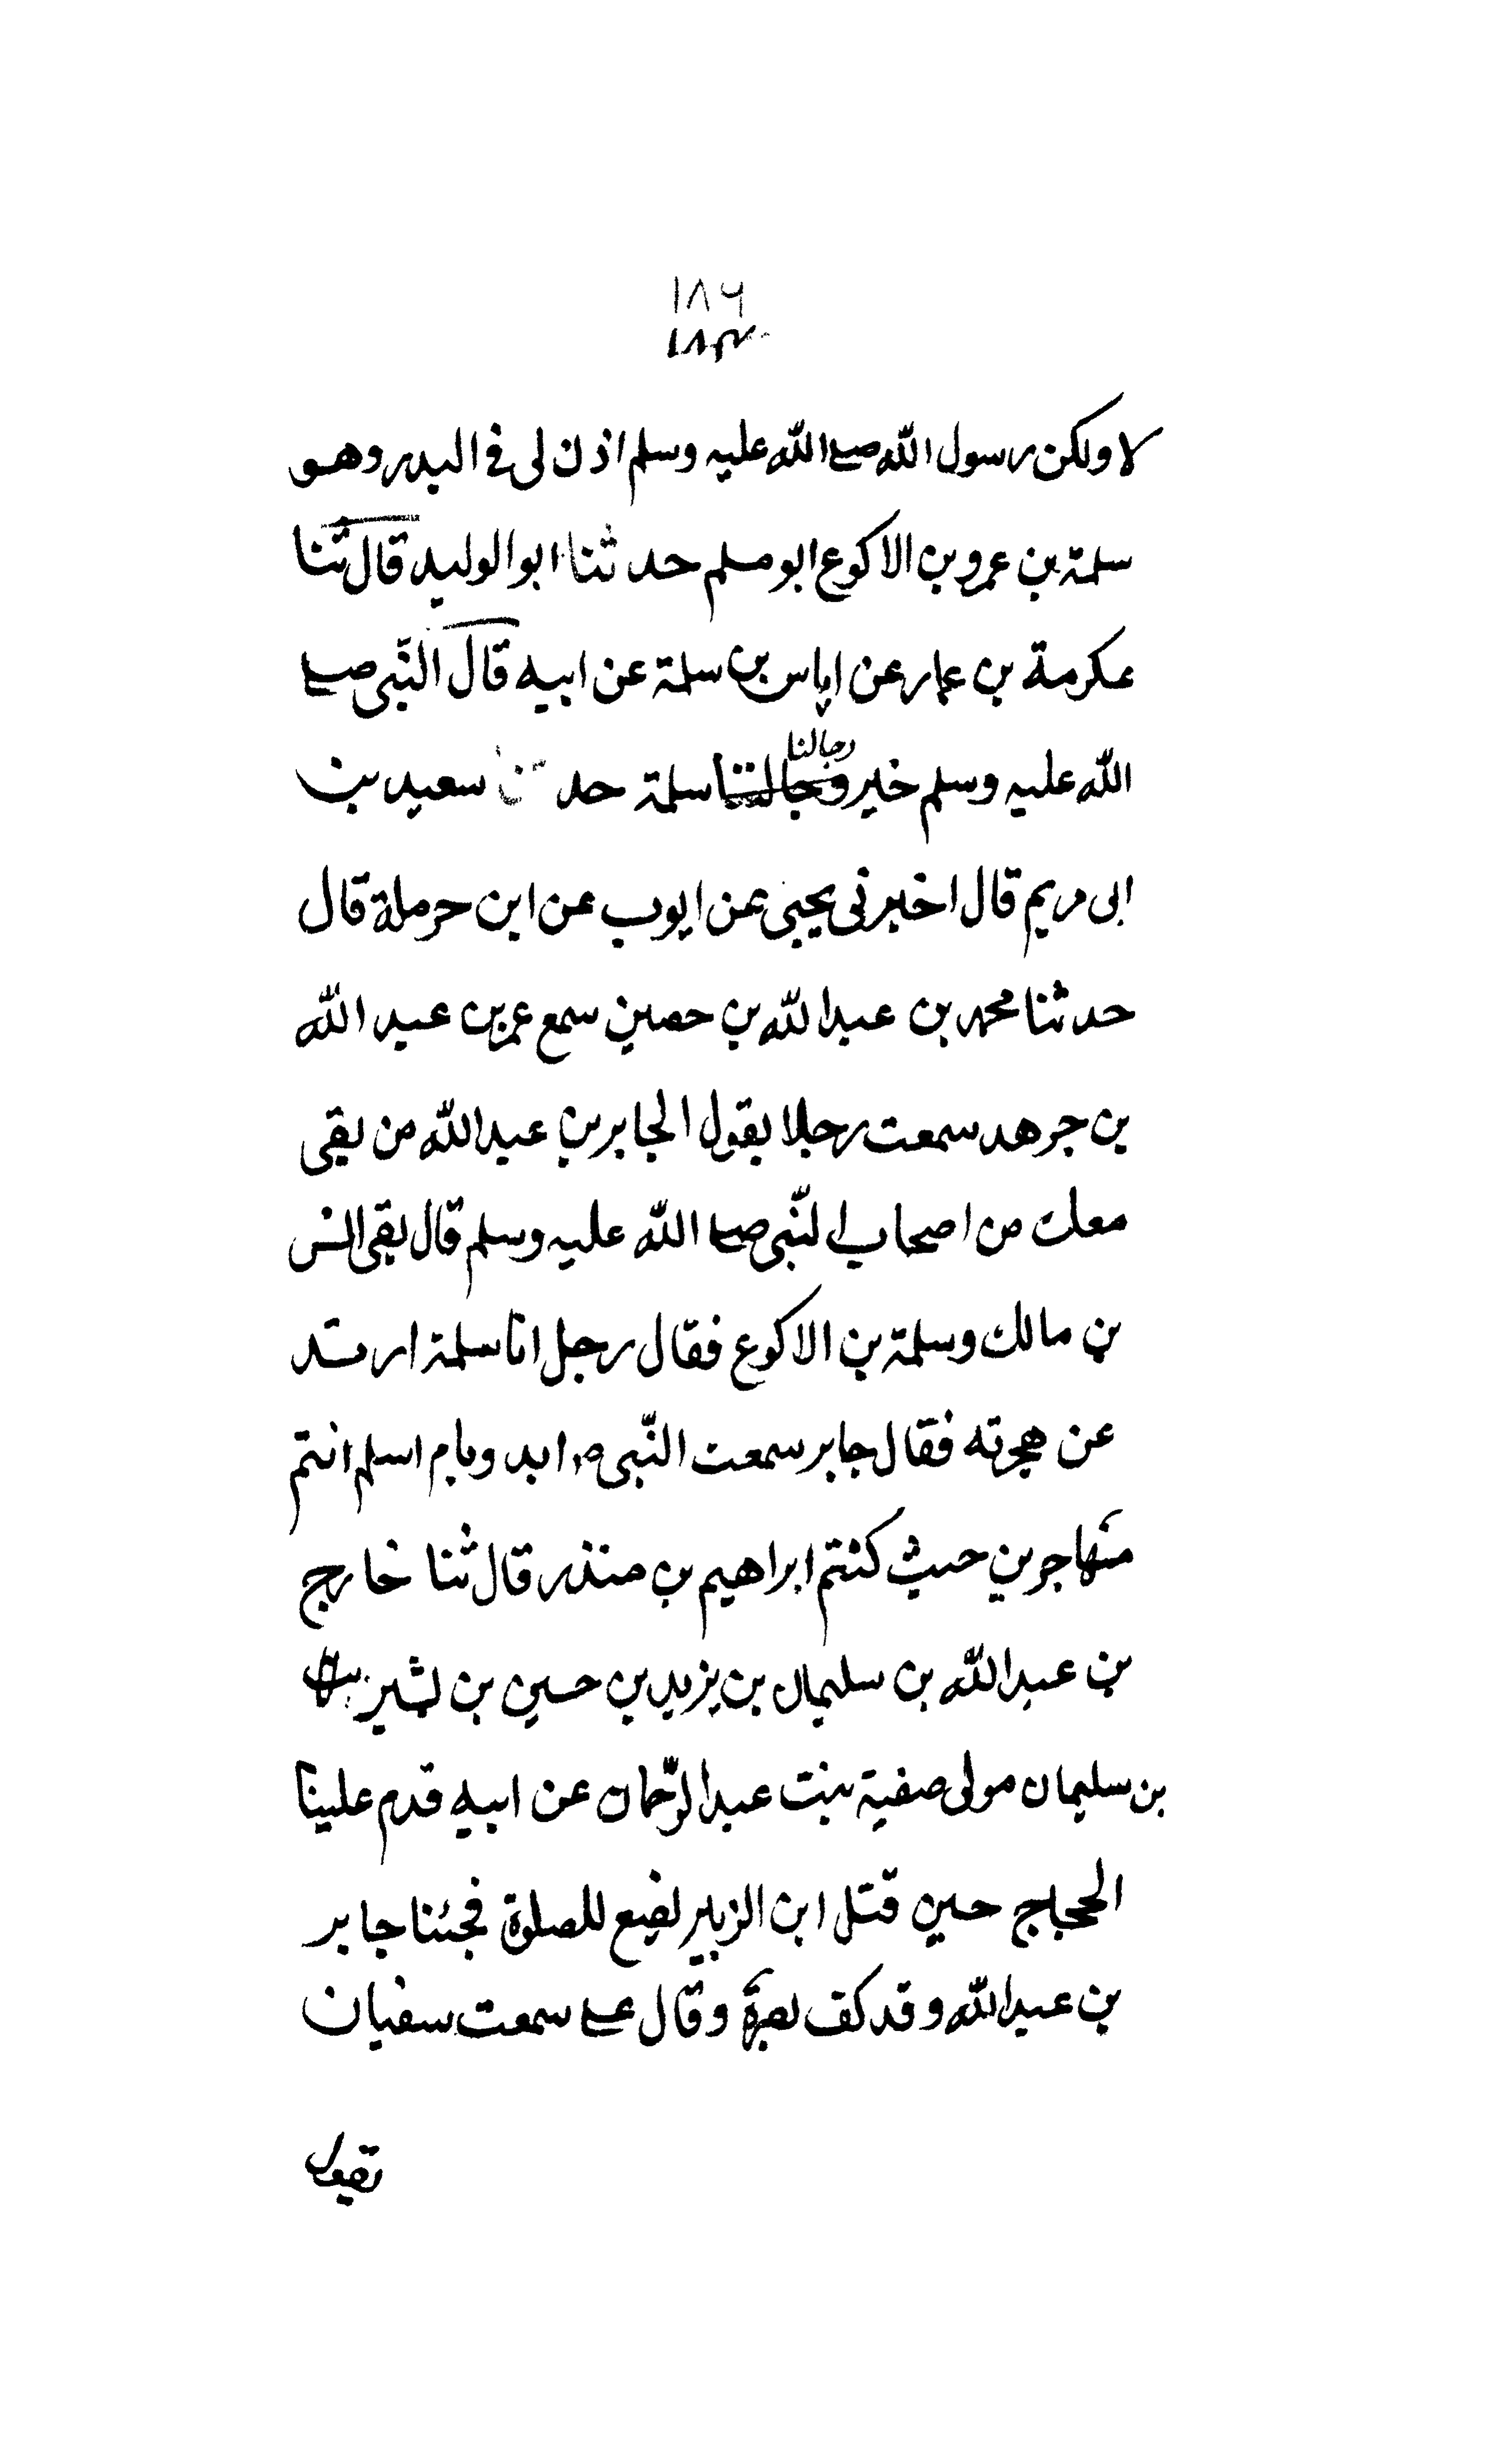 ١٨٦
لا ولكن رسول الله صلے الله عليه وسلم اذن لى فى البدر وهو
سلمة بن عمرو بن الاكوع ابو مسلم حدثنا ابو الوليد قال ثنا
عكرمة بن عمار عن اياس بن سلمة عن ابيه قال النّبى صلے
الله عليه وسلم خير رجالنا سلمة حدثنا سعيد بن
ابى مريم قال اخبرنى يحيى عن ايوب عن ابن حرملة قال
حدثنا محمد بن عبد الله بن حصين سمع عمر بن عبد الله
بن جرهد سمعت رجلا يقول الجابر بن عبد الله من بقى
معك من اصحاب النّبى صلے الله عليه وسلم قال بقى انس
بن مالك وسلمة بن الاكوع فقال رجل انا سلمة ارتد
عن هجرته فقال جابر سمعت النّبى ص ابدو يام اسلم انتم
مهاجرين حيث كنتم ابراهيم بن منذر قال ثنا خارج
بن عبد الله بن سليمان بن يزيد بن حسين بن بشير
بن سليمان مولى صفية بنت عبد الرّحمان عن ابيه قدم علينا
الحجاج حين قتل ابن الزبير لضيع للصلوة فجئنا جابر
بن عبد الله وقد كف بصره وقال علے سمعت سفيان
يقول